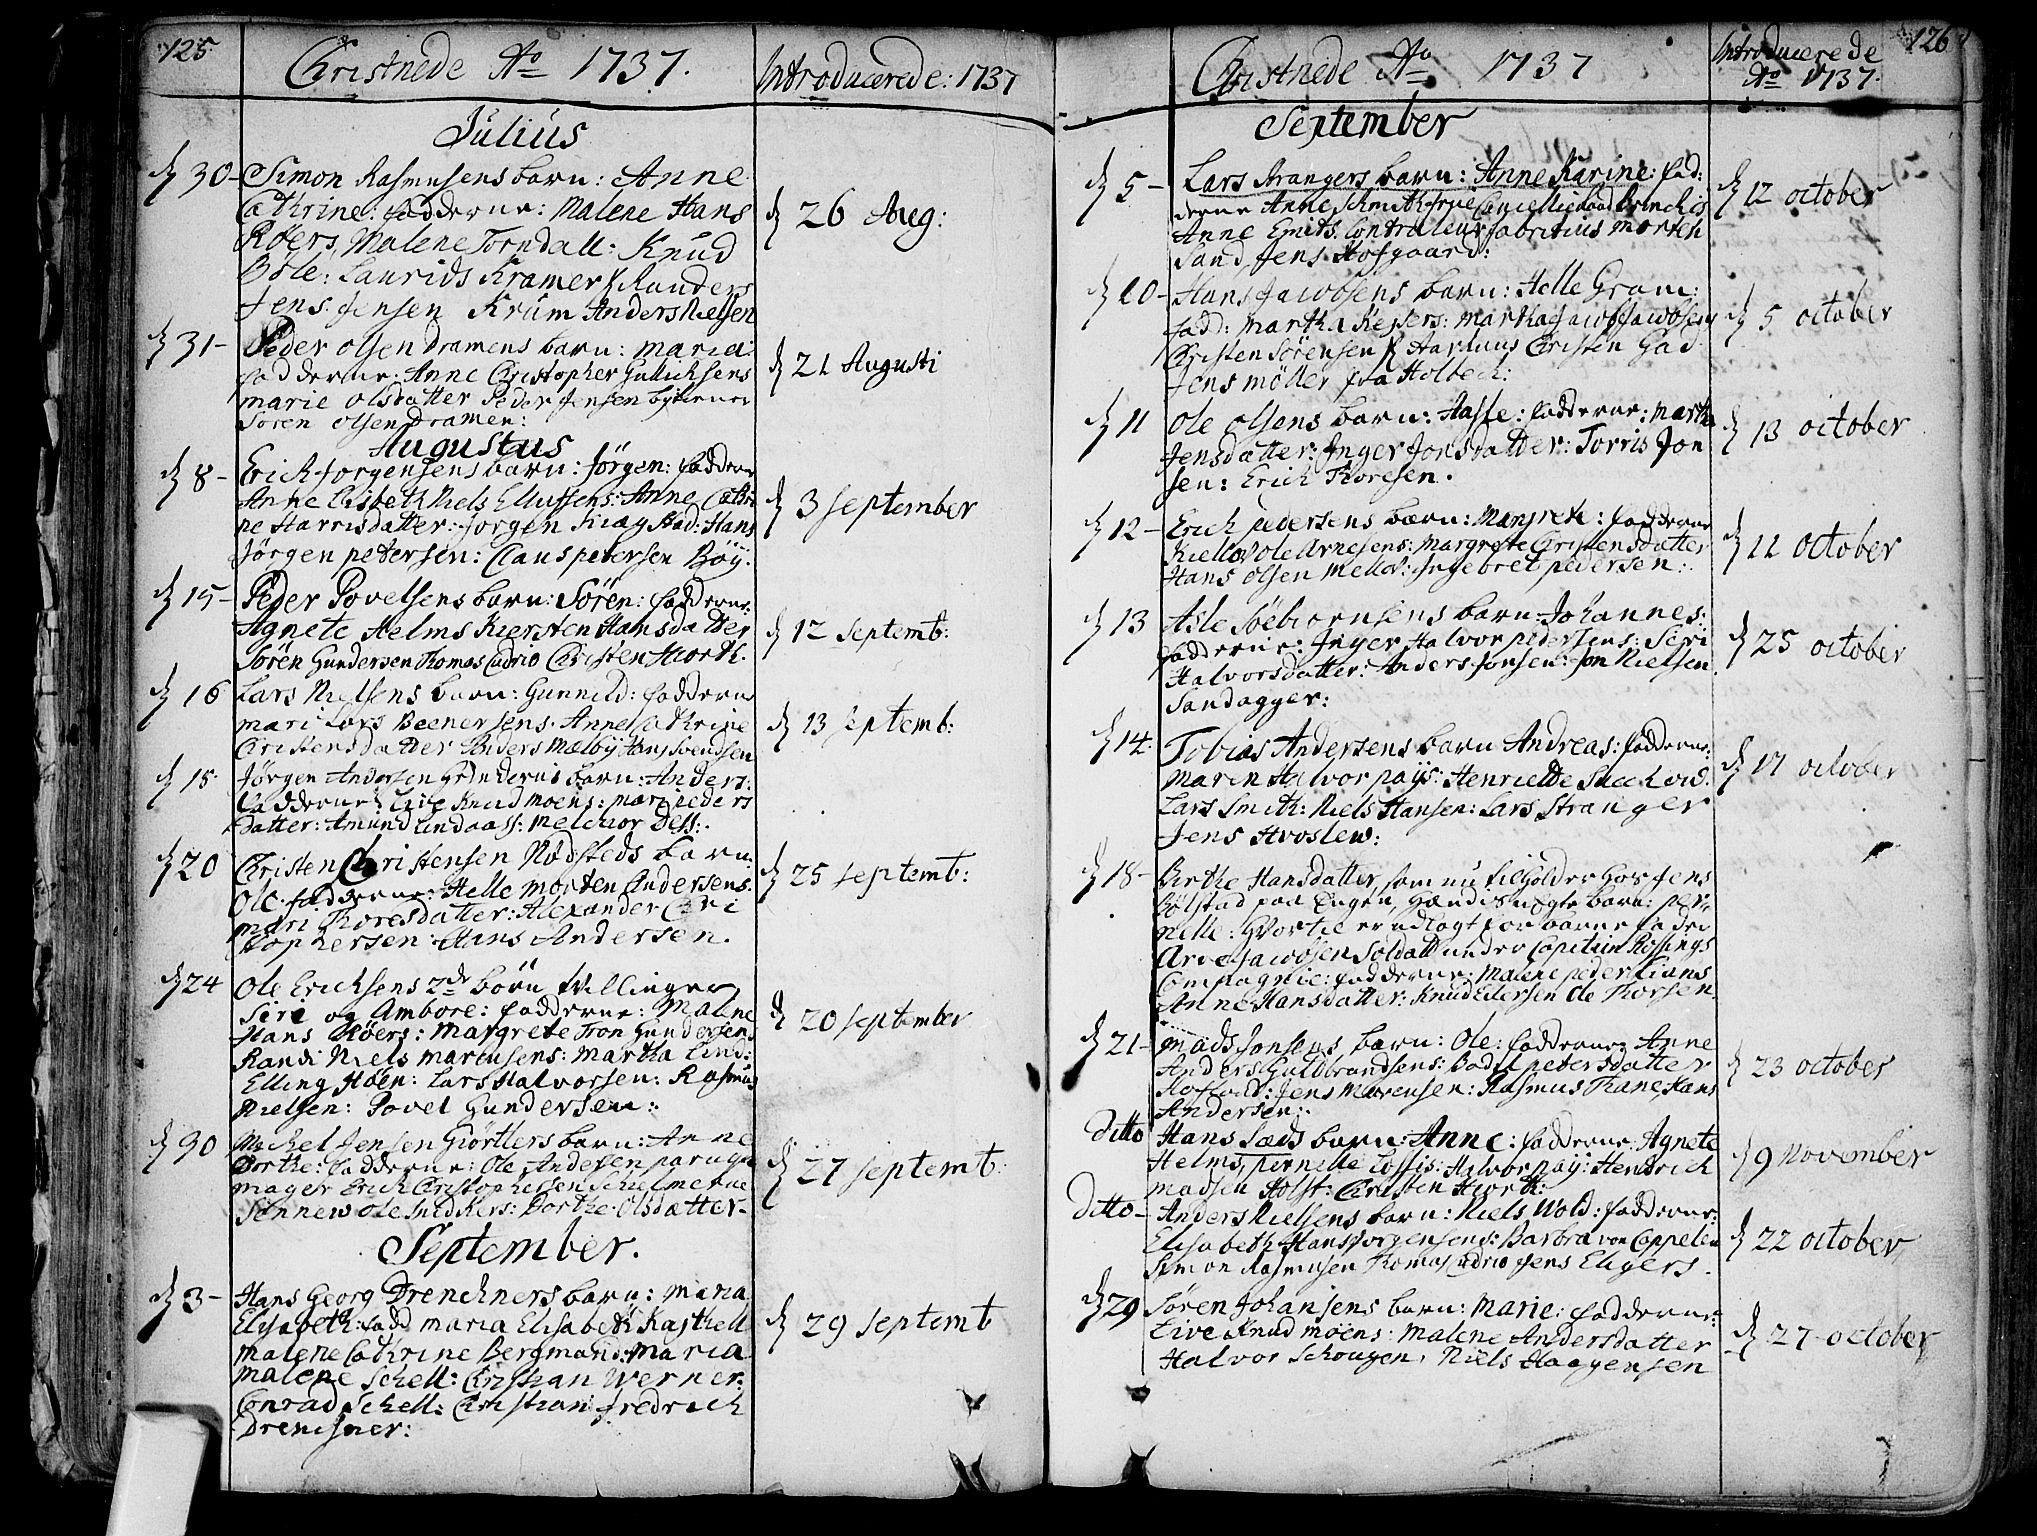 125
Christnede Ao 1737.
Introducerede: 1737
Julius
d 30 - Simon Rasmusens barn: Anne
Cathrine: fadderne: Malene Hans
Röers, Malene Torndall: Knud
Böle: Laurids Kramer Randers
Jens Jensen Krüm Anders Nielsen
d 26 Aug:
d 31 - Peder Olsen Dramens barn: Maria
fadderne: Anne Christopher Gullichsens
Marie Olsdatter Peder Jensen
Sören Olsen Dramen:
d 21 Augusti
Augustus
d 8 - Erich Jorgensens barn: Jörgen: faddern
Anne Lisbeth Niels Ellufsens: Anne Cathri
ne Harrisdatter: Jorgen Kragstad: Hans
Jörgen petersen: Claus petersen Böÿ.
d 3 September
d 15 - Peder Povelsens barn: Sören: fadderne:
Agnete Helms Kiersten Hansdatter
Sören Gundersen Thomas Cudrio Christen Hiorth.
d 12 Septemb:
d 16 Lars Nielsens barn: Gunnild: faddern
mari Lars Beenersens. Anne Cathrine
Christensdatter Anders Mælbÿ Hans Svendsen
d 13 Septemb:
d 15 Jörgen Andersen barn: Anders:
fadderne: Live Knud Moens: Mari peders
datter: Amund Lindaass: Melchior Dess:
d 20 Christen Christensen Nödsteds barn:
Ole: fadderne: Helle Morten Andersens
mari Thoresdatter: Alexander Chri
stophersen: Hans Andersen.
d 25 Septemb:
d 24 Ole Erichsens 2de börn tvillinger
Siri og Ambore: fadderne: Malene
Hans Röers: Margrete Tron Gundersens
Randi Niels Marcusens: Martha Lind:
Elling Höen: Lars Halvorsen: Rasmus
Nielsen: Povel Gundersen:
d 20 September
d 30 Michel Jensen Giörtlers barn: Anne
Dorthe: fadderne: Ole Andersen paruqve
mager Erich Christophersen
Sennew Ole Snidkers: Dorthe Olsdatter -
d 27 Septemb:
September.
d 3 - Hans Georg Drenchners barn: Maria
Elisabeth: fadd Maria Elisabeth Kasthell
Malene Cathrine Bergmand: Maria
Malene Schell: Christian Werner:
Conrad Schell: Christian fredrich
Drenchner:
d 29 Septemb
126
Christnede Ao 1737
Introducerede
Ao 1737.
September
d 5 - Lars Strangers barn: Anne Karine: fad:
derne Anne Schmith frue Cancellieraad
Anne Emits. Controleur fabritius Morten
Sand, Jens Hofgaard:
d 12 October
d 10 - Hans Jacobsens barn: Helle Gram:
fadd: Martha Keysers: Martha Jacob Jacobsens
Christen Sörensen Aarhuus Christen Gad
Jens möller fra Holbech:
d 5 October
d 11 Ole Olsens barn: Aasse: fadderne: Martha
Jensdatter: Inger Jonsdatter: Torris Jon
sen: Erich Thoresen.
d 13 October
d 12 - Erich pedersens barn: Margrete: fadderne
Ole Arnesens: Margrete Christensdatter
Hans Olsen Melbÿ: Ingebret pedersen:
d 11 October
d 13 Asle Söebiornsens barn: Johannes:
fadderne: Inger Halvor pedersens: Siri
Halvorsdatter: Anders Jonsen: Jon Nielsen
Sandagger:
d 25 October
d 14 Tobias Andersens barn Andreas: fadderne:
Maren Halvor paÿs: Henriette
Lars Smith: Niels Hansen: Lars Stranger
Jens Hvoslew:
d 17 October
d 18 - Birthe Hansdatter, som nu tilholder hos Jens
Bölstad paa Engen, hændis uægte barn: per:
nelle: hvortil er udlagt for barne fader
Are Jacobsen Soldatt under Capitain Rossings
Compagnie: fadderne: Malene peder
Anne Hansdatter: Knud Edersen Ole Thorsen.
d 21 - Mads Jonsens barn: Ole: fadderne Anne
Anders Guldbrandsens: Bodil pedersdatter
Jens Morensen: Rasmus Thane Hans
Andersen:
d 23 October
Ditto Hans Sæds barn: Anne: fadderne: Agnete
Helms, pernelle Halvor paÿ: Hendrich
Madsen Holst: Christen Hiorth:
d 9 November
Ditto - Anders Nielsens barn: Niels Wold: fadderne:
Elisabeth Hans Jorgensens: Barbra von Cappelen
Simon Rasmusen Thomas Cudrio Jens Eligers.
d 22 October
d 29 Sören Johansens barn: Marie: fadderne:
Live Knud moens: Malene Andersdatter
Halvor Schougen, Niels Haagensen
d 27 October